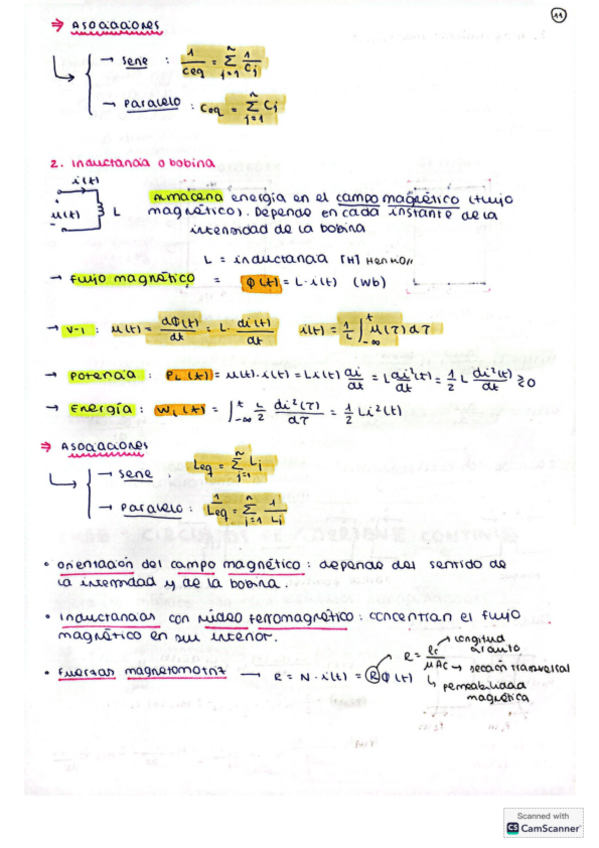 11
⇒ Asociaciones
→ serie : 1/Ceq = Σ(j=1, n) 1/Cj
→ Paralelo : Ceq = Σ(j=1, n) Cj
2. Inductancia o bobina
i(t)
u(t) L
Almacena energía en el campo magnético (flujo
magnético). Depende en cada instante de la
intensidad de la bobina
L = inductancia [H] Henrios
→ Flujo magnético = φ(t) = L·i(t) (Wb)
→ V-I : u(t) = dφ(t)/dt = L · di(t)/dt i(t) = 1/L ∫(-∞, t) u(τ) dτ
→ Potencia : PL(t) = u(t)·i(t) = L i(t) di/dt = L di²(t)/dt = 1/2 L di²(t)/dt ≥ 0
→ Energía : WL(t) = ∫(-∞, t) L/2 di²(τ)/dτ = 1/2 L i²(t)
⇒ Asociaciones
→ serie : Leq = Σ(j=1, n) Lj
→ Paralelo : 1/Leq = Σ(j=1, n) 1/Lj
• orientación del campo magnético : depende del sentido de
la intensidad y de la bobina.
• Inductancias con núcleo ferromagnético : concentran el flujo
magnético en su interior.
• Fuerzas magnetomotriz → R = N · i(t) = R φ(t)
R = lc/μAc
→ longitud circuito
→ sección transversal
↳ permeabilidad
magnética
Scanned with
CS CamScanner